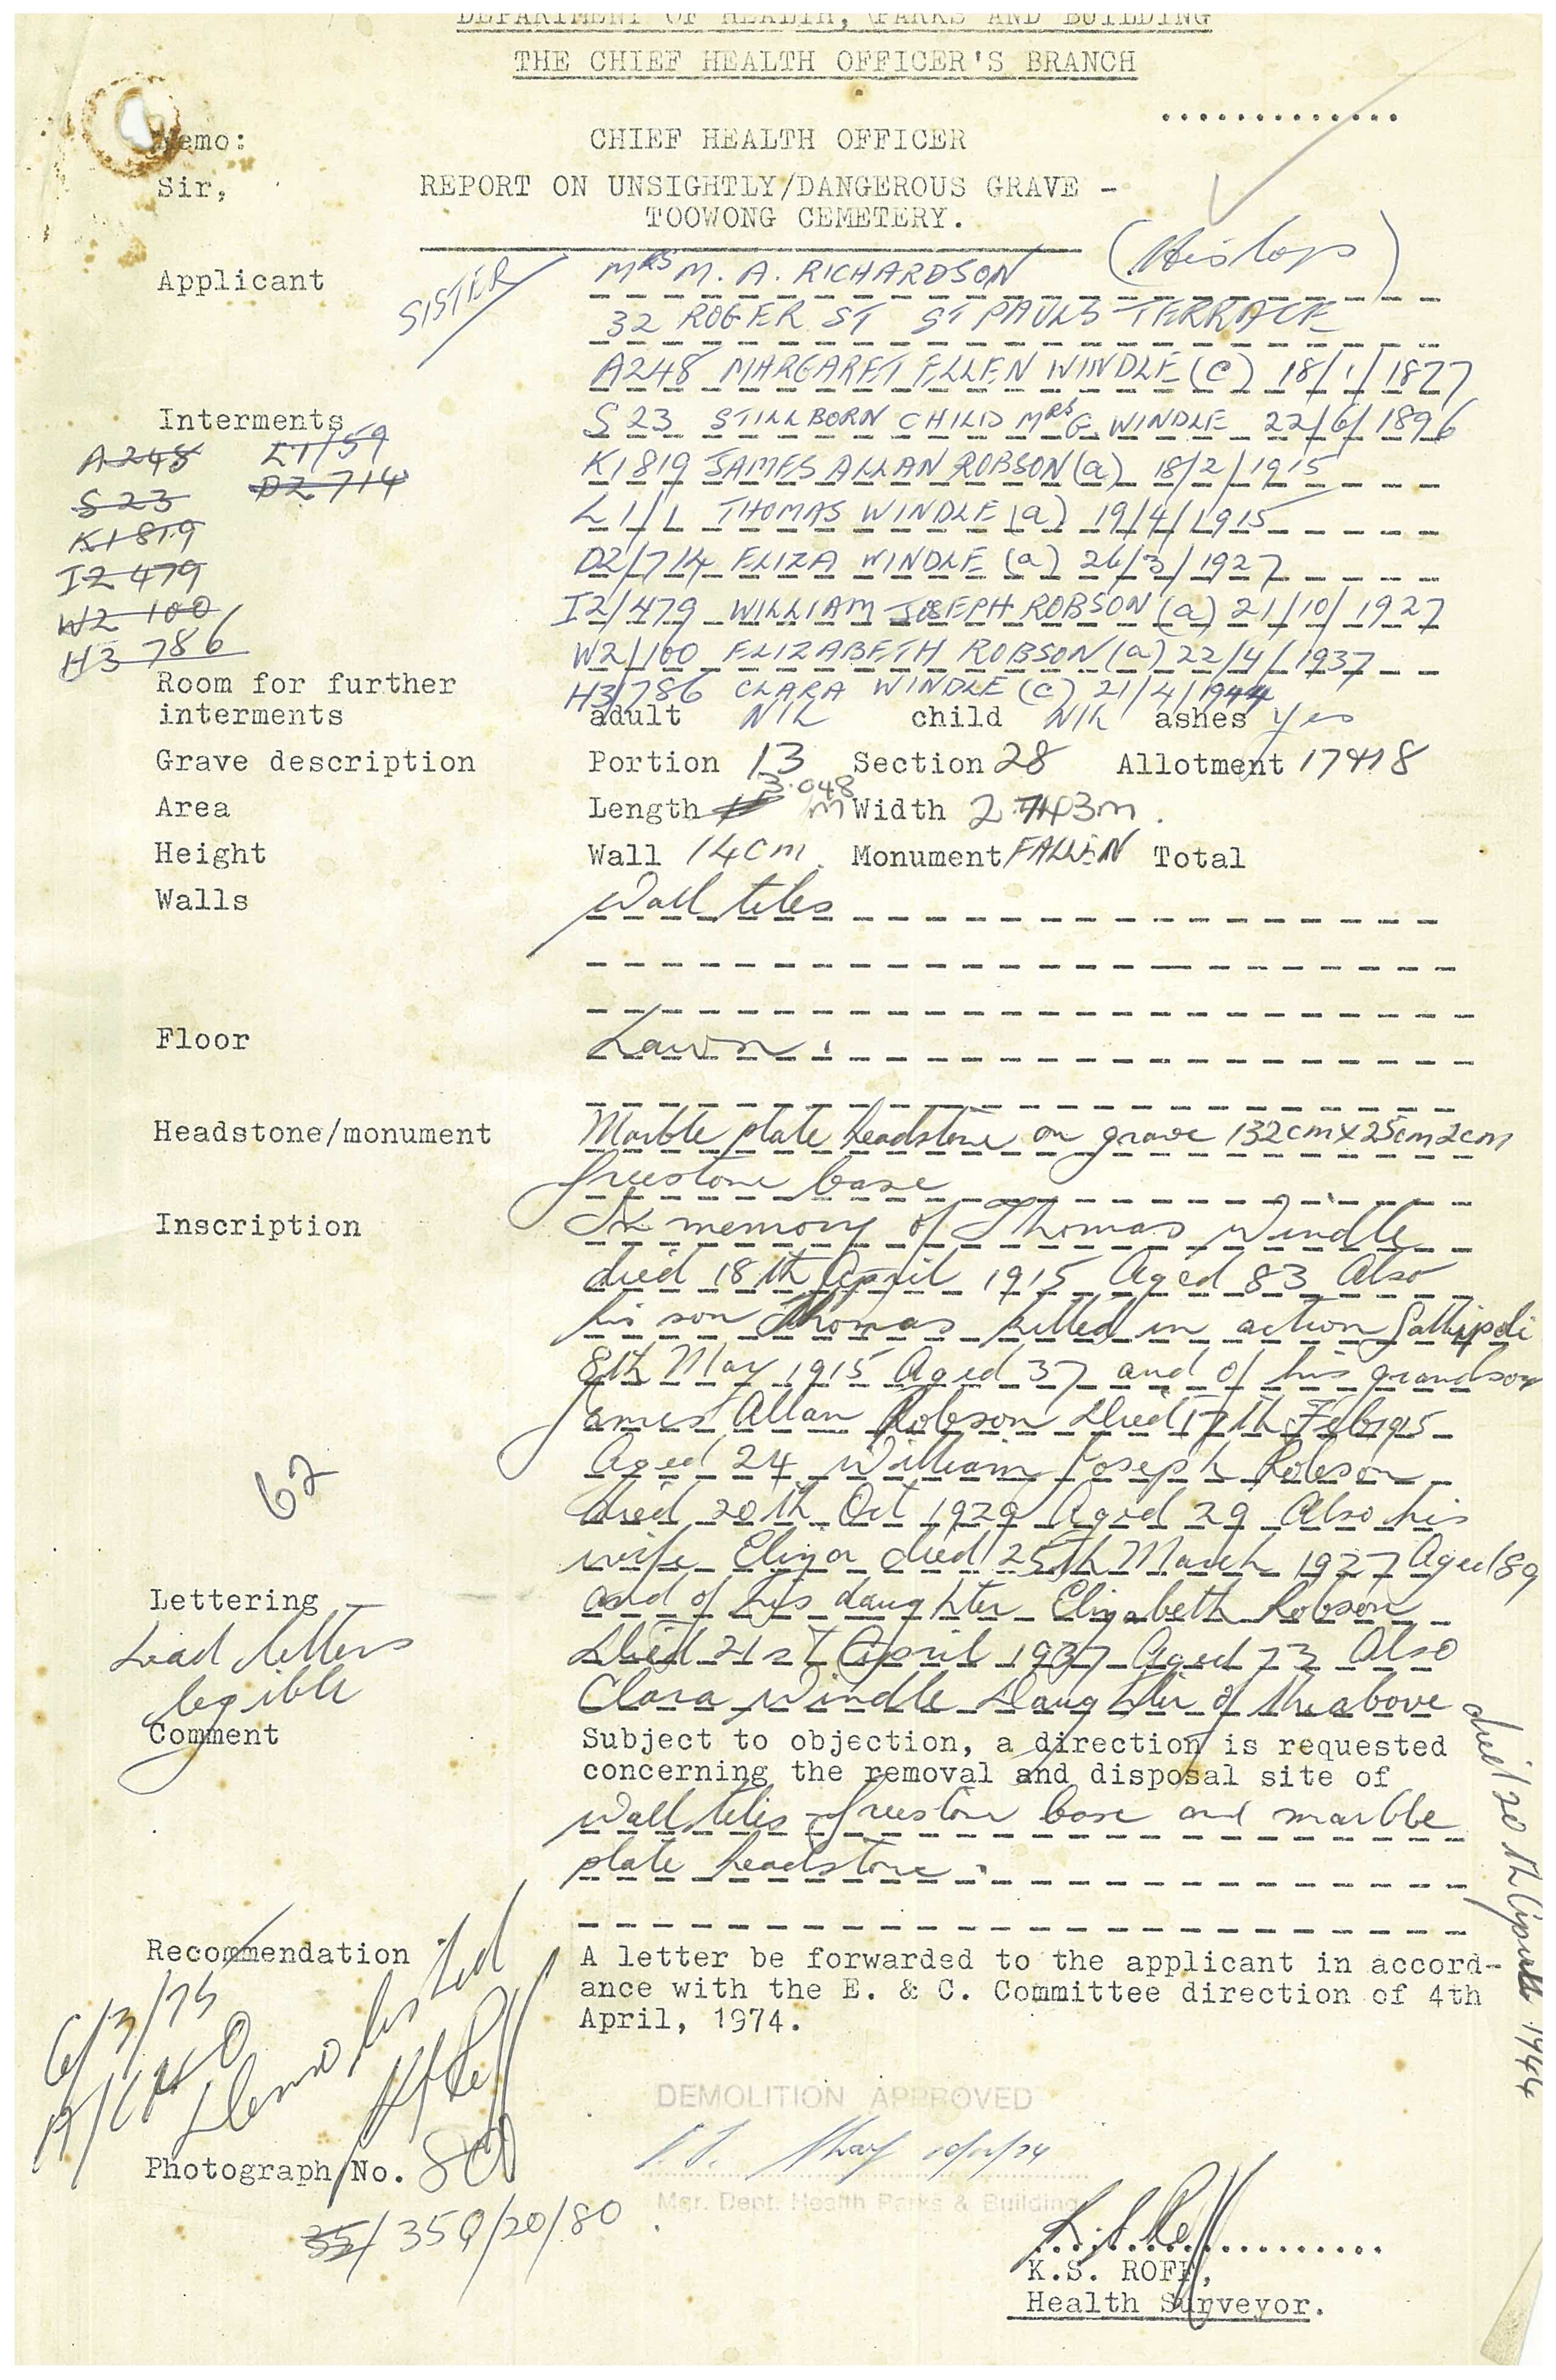 DEPARTMENT OF HEALTH, PARKS AND BUILDING
THE CHIEF HEALTH OFFICER'S BRANCH
.............
Memo: CHIEF HEALTH OFFICER
Sir, REPORT ON UNSIGHTLY/DANGEROUS GRAVE -
TOOWONG CEMETERY.
Applicant SISTER MRS M. A. RICHARDSON
32 ROGER ST ST PAULS TERRACE
A248 MARGARET ELLEN WINDLE (C) 18/1/1877
Interments S 23 STILLBORN CHILD MRS G. WINDLE 22/6/1896
A 248 L1/59
K1819 JAMES ALLAN ROBSON (a) 18/2/1915
S 23 D2 714
L 1/1 THOMAS WINDLE (a) 19/4/1915
K1819
D2/714 ELIZA WINDLE (a) 26/3/1927
I2 479
I2/479 WILLIAM JOSEPH ROBSON (a) 21/10/1927
W2 100
W2/100 ELIZABETH ROBSON (a) 22/4/1937
H3 786
H3/786 CLARA WINDLE (C) 21/4/1944
Room for further
interments adult NIL child NIL ashes yes
Grave description Portion 13 Section 28 Allotment 17+18
Area Length 3.048 m Width 2.743m.
Height Wall 14cm. Monument FALLEN Total
Walls Wall tiles
Floor Lawn.
Headstone/monument Marble plate headstone on grave 132cm x 25cm 2cm
freestone base
Inscription In memory of Thomas Windle
died 18th April 1915 Aged 83 Also
his son Thomas killed in action Gallipoli
8th May 1915 Aged 37 and of his grandson
James Allan Robson Died 17th Feb 1915
Aged 24 William Joseph Robson
62
Died 20th Oct 1929 Aged 29 Also his
wife Eliza died 25th March 1927 Aged 89
Lettering and of his daughter Elizabeth Robson
Lead letters Died 21st April 1937 Aged 73 Also
legible Clara Windle Daughter of the above
died 20th April 1944
Comment Subject to objection, a direction is requested
concerning the removal and disposal site of
Wall tiles freestone base and marble
plate headstone.
Recommendation A letter be forwarded to the applicant in accord-
ance with the E. & C. Committee direction of 4th
April, 1974.
6/3/75
Demolished
DEMOLITION APPROVED
Photograph No. 80
Mgr. Dept. Health Parks & Building
35/350/20/80
K.S. ROFF,
Health Surveyor.